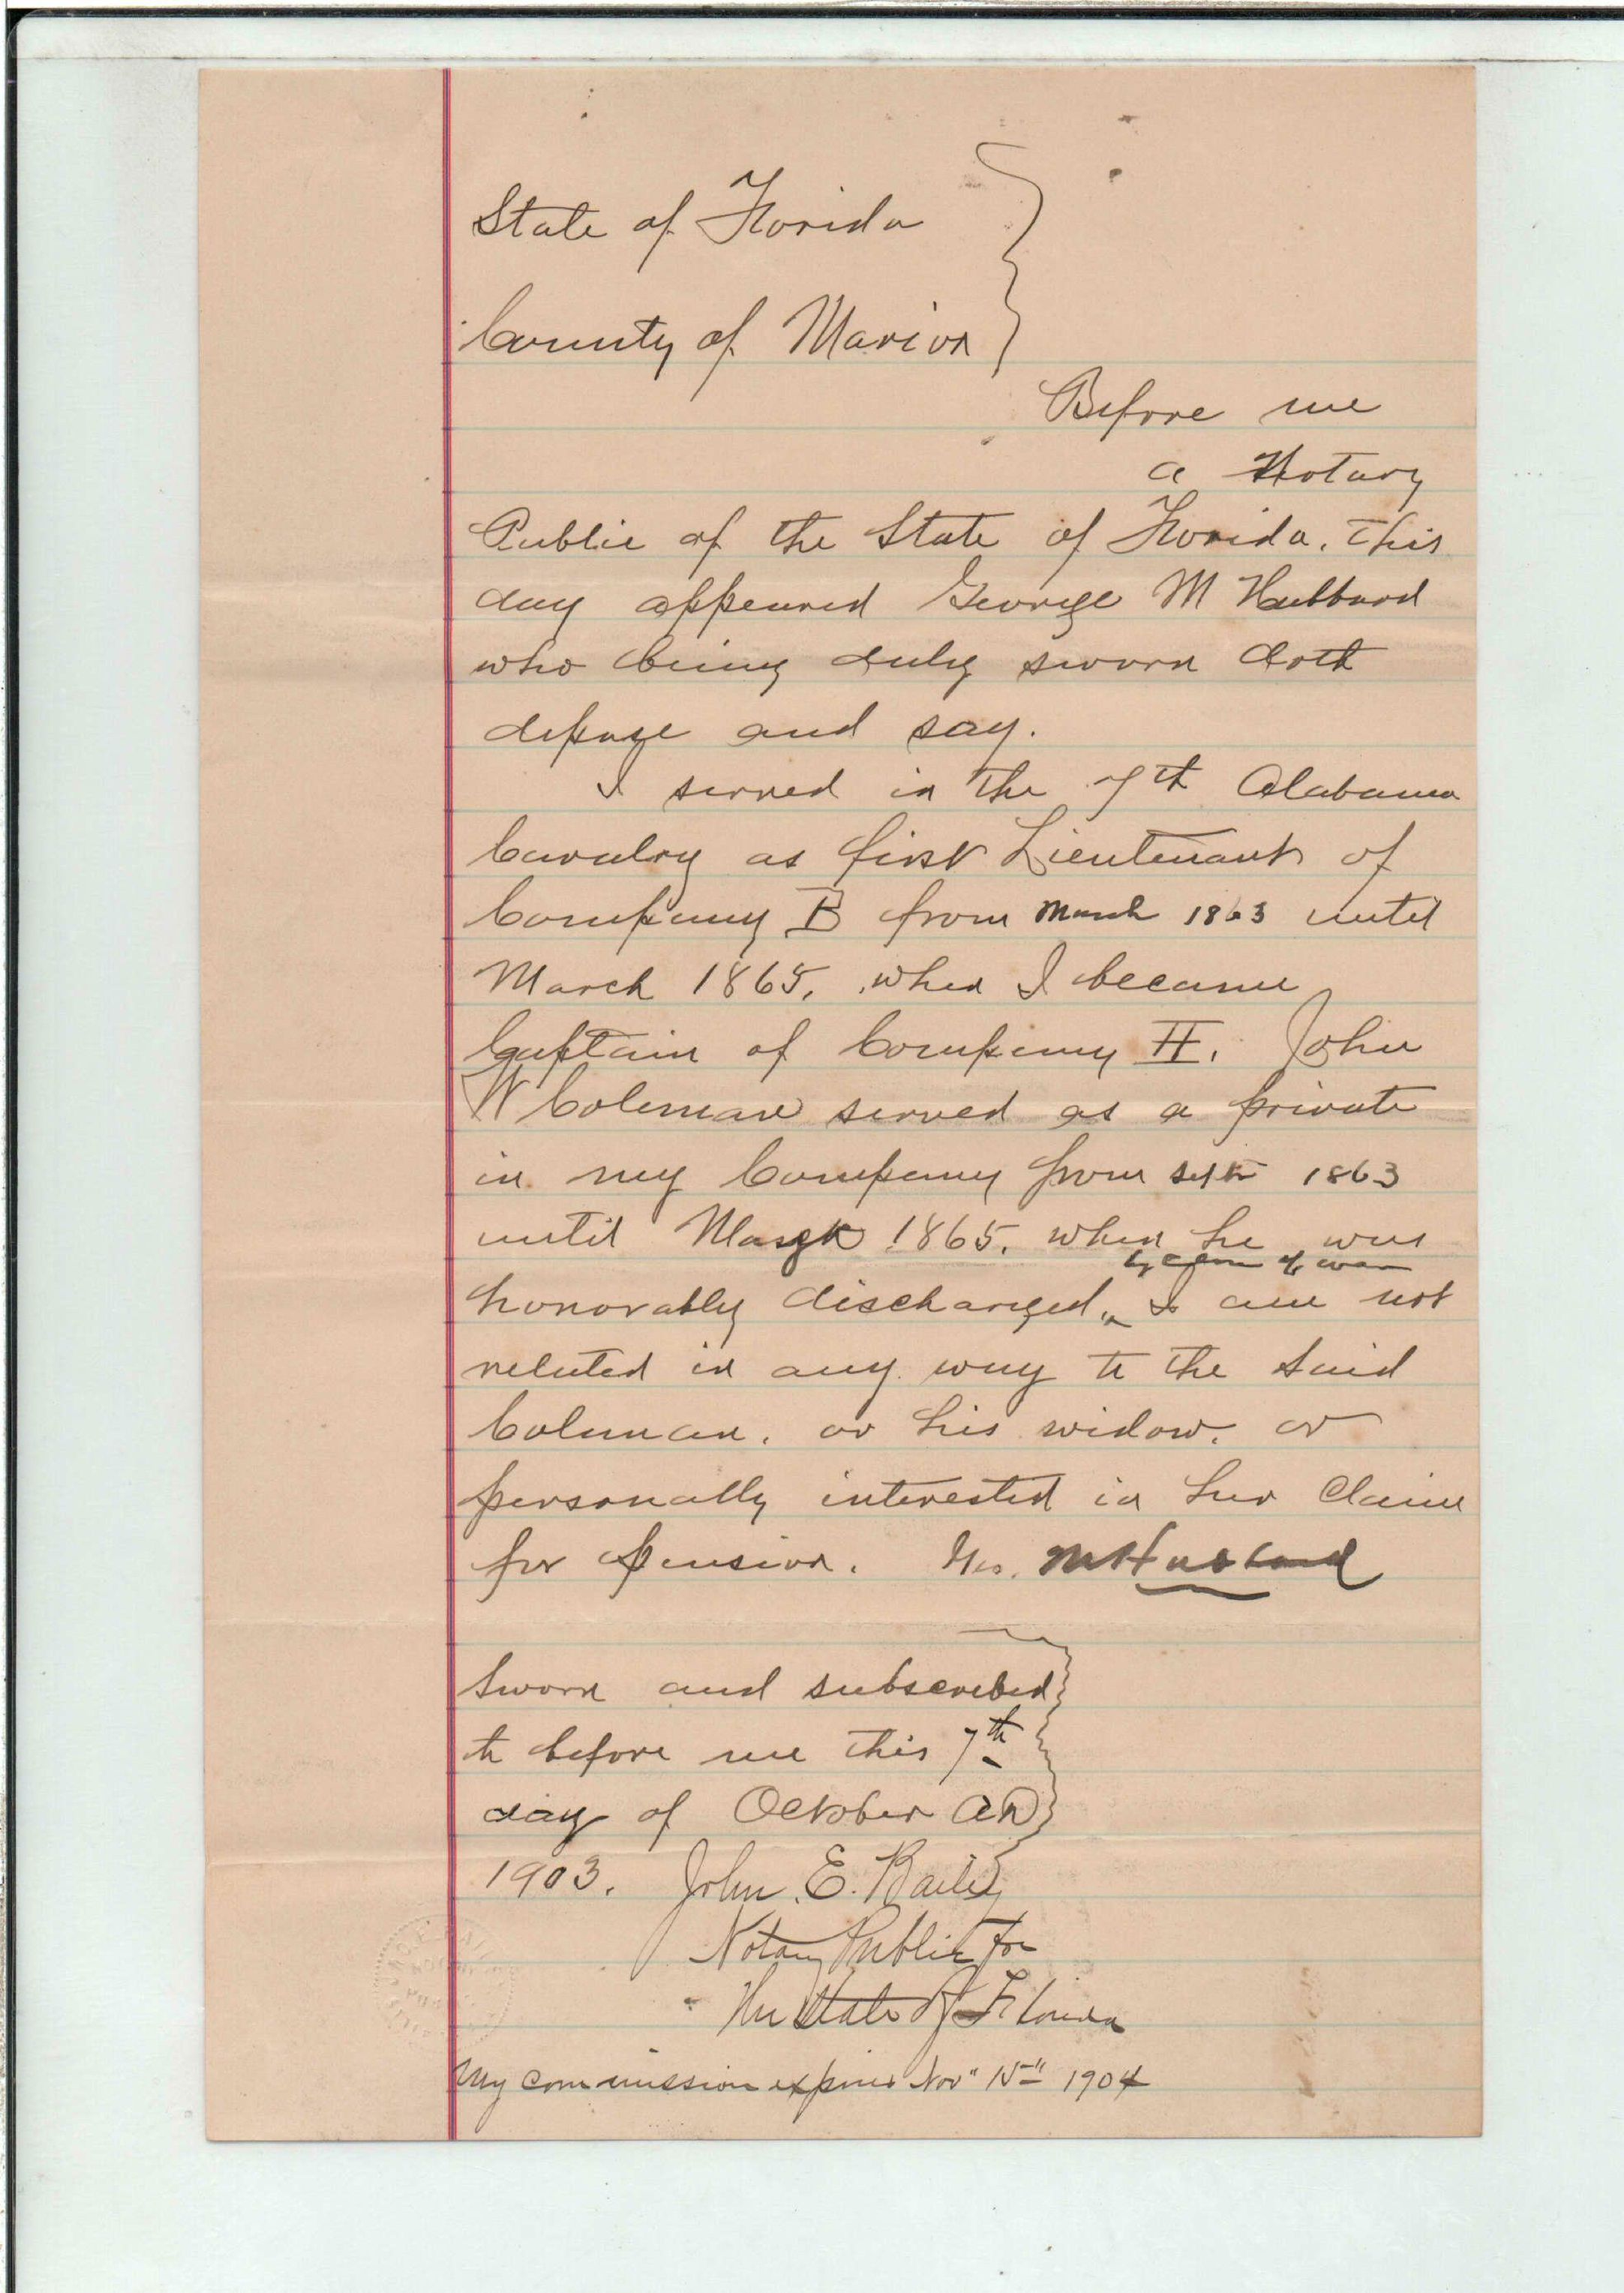 State of Florida
County of Marion
Before me
a Notary
Public of the State of Florida, this
day appeared George M Hubbard
who being duly sworn doth
depose and say.
I served in the 7th Alabama
Cavalry as first Lieutenant of
Company B from March 1863 until
March 1865, when I became
Captain of Company H. John
W Coleman served as a private
in my Company from Sept 1863
until March 1865, when he was
by close of war
honorably discharged, I am not
related in any way to the said
Coleman, or his widow, or
personally interested in her Claim
for Pension. Geo. M Hubbard
Sworn and subscribed
to before me this 7th
day of October AD
1903. John E. Bailey
Notary Public for
the State of Florida
My commission expires Nov" 15" 1904